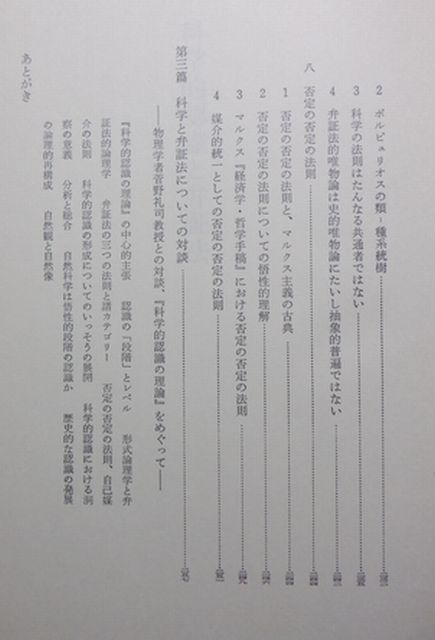 2 ポルピュリオスの類-種系統樹
3 科学の法則はたんなる共通者ではない
4 弁証法的唯物論は史的唯物論にたいし抽象的普遍ではない
八 否定の否定の法則
1 否定の否定の法則と、マルクス主義の古典
2 否定の否定の法則についての悟性的理解
3 マルクス『経済学・哲学手稿』における否定の否定の法則
4 媒介的統一としての否定の否定の法則
第三篇 科学と弁証法についての対談
――物理学者菅野礼司教授との対談、『科学的認識の理論』をめぐって――
『科学的認識の理論』の中心的主張 認識の「段階」とレベル 形式論理学と弁
証法的論理学 弁証法の三つの法則と諸カテゴリー 否定の否定の法則、自己媒
介の法則 科学的認識の形成についてのいっそうの展開 科学的認識における洞
察の意義 分析と総合 自然科学は悟性的段階の認識か 歴史的な認識の発展
の論理的再構成 自然観と自然像
あとがき